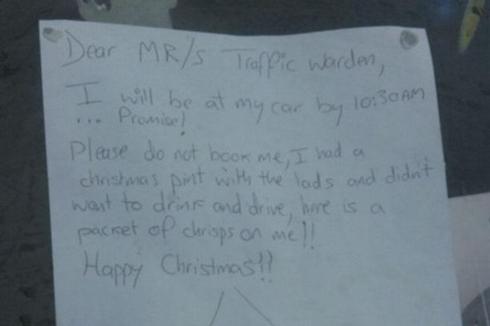 Dear MR/s Traffic Warden,
I will be at my car by 10:30AM
... Promise!
Please do not book me, I had a
christmas pint with the lads and didn't
want to drink and drive, here is a
packet of chrisps on me!!
Happy Christmas!!